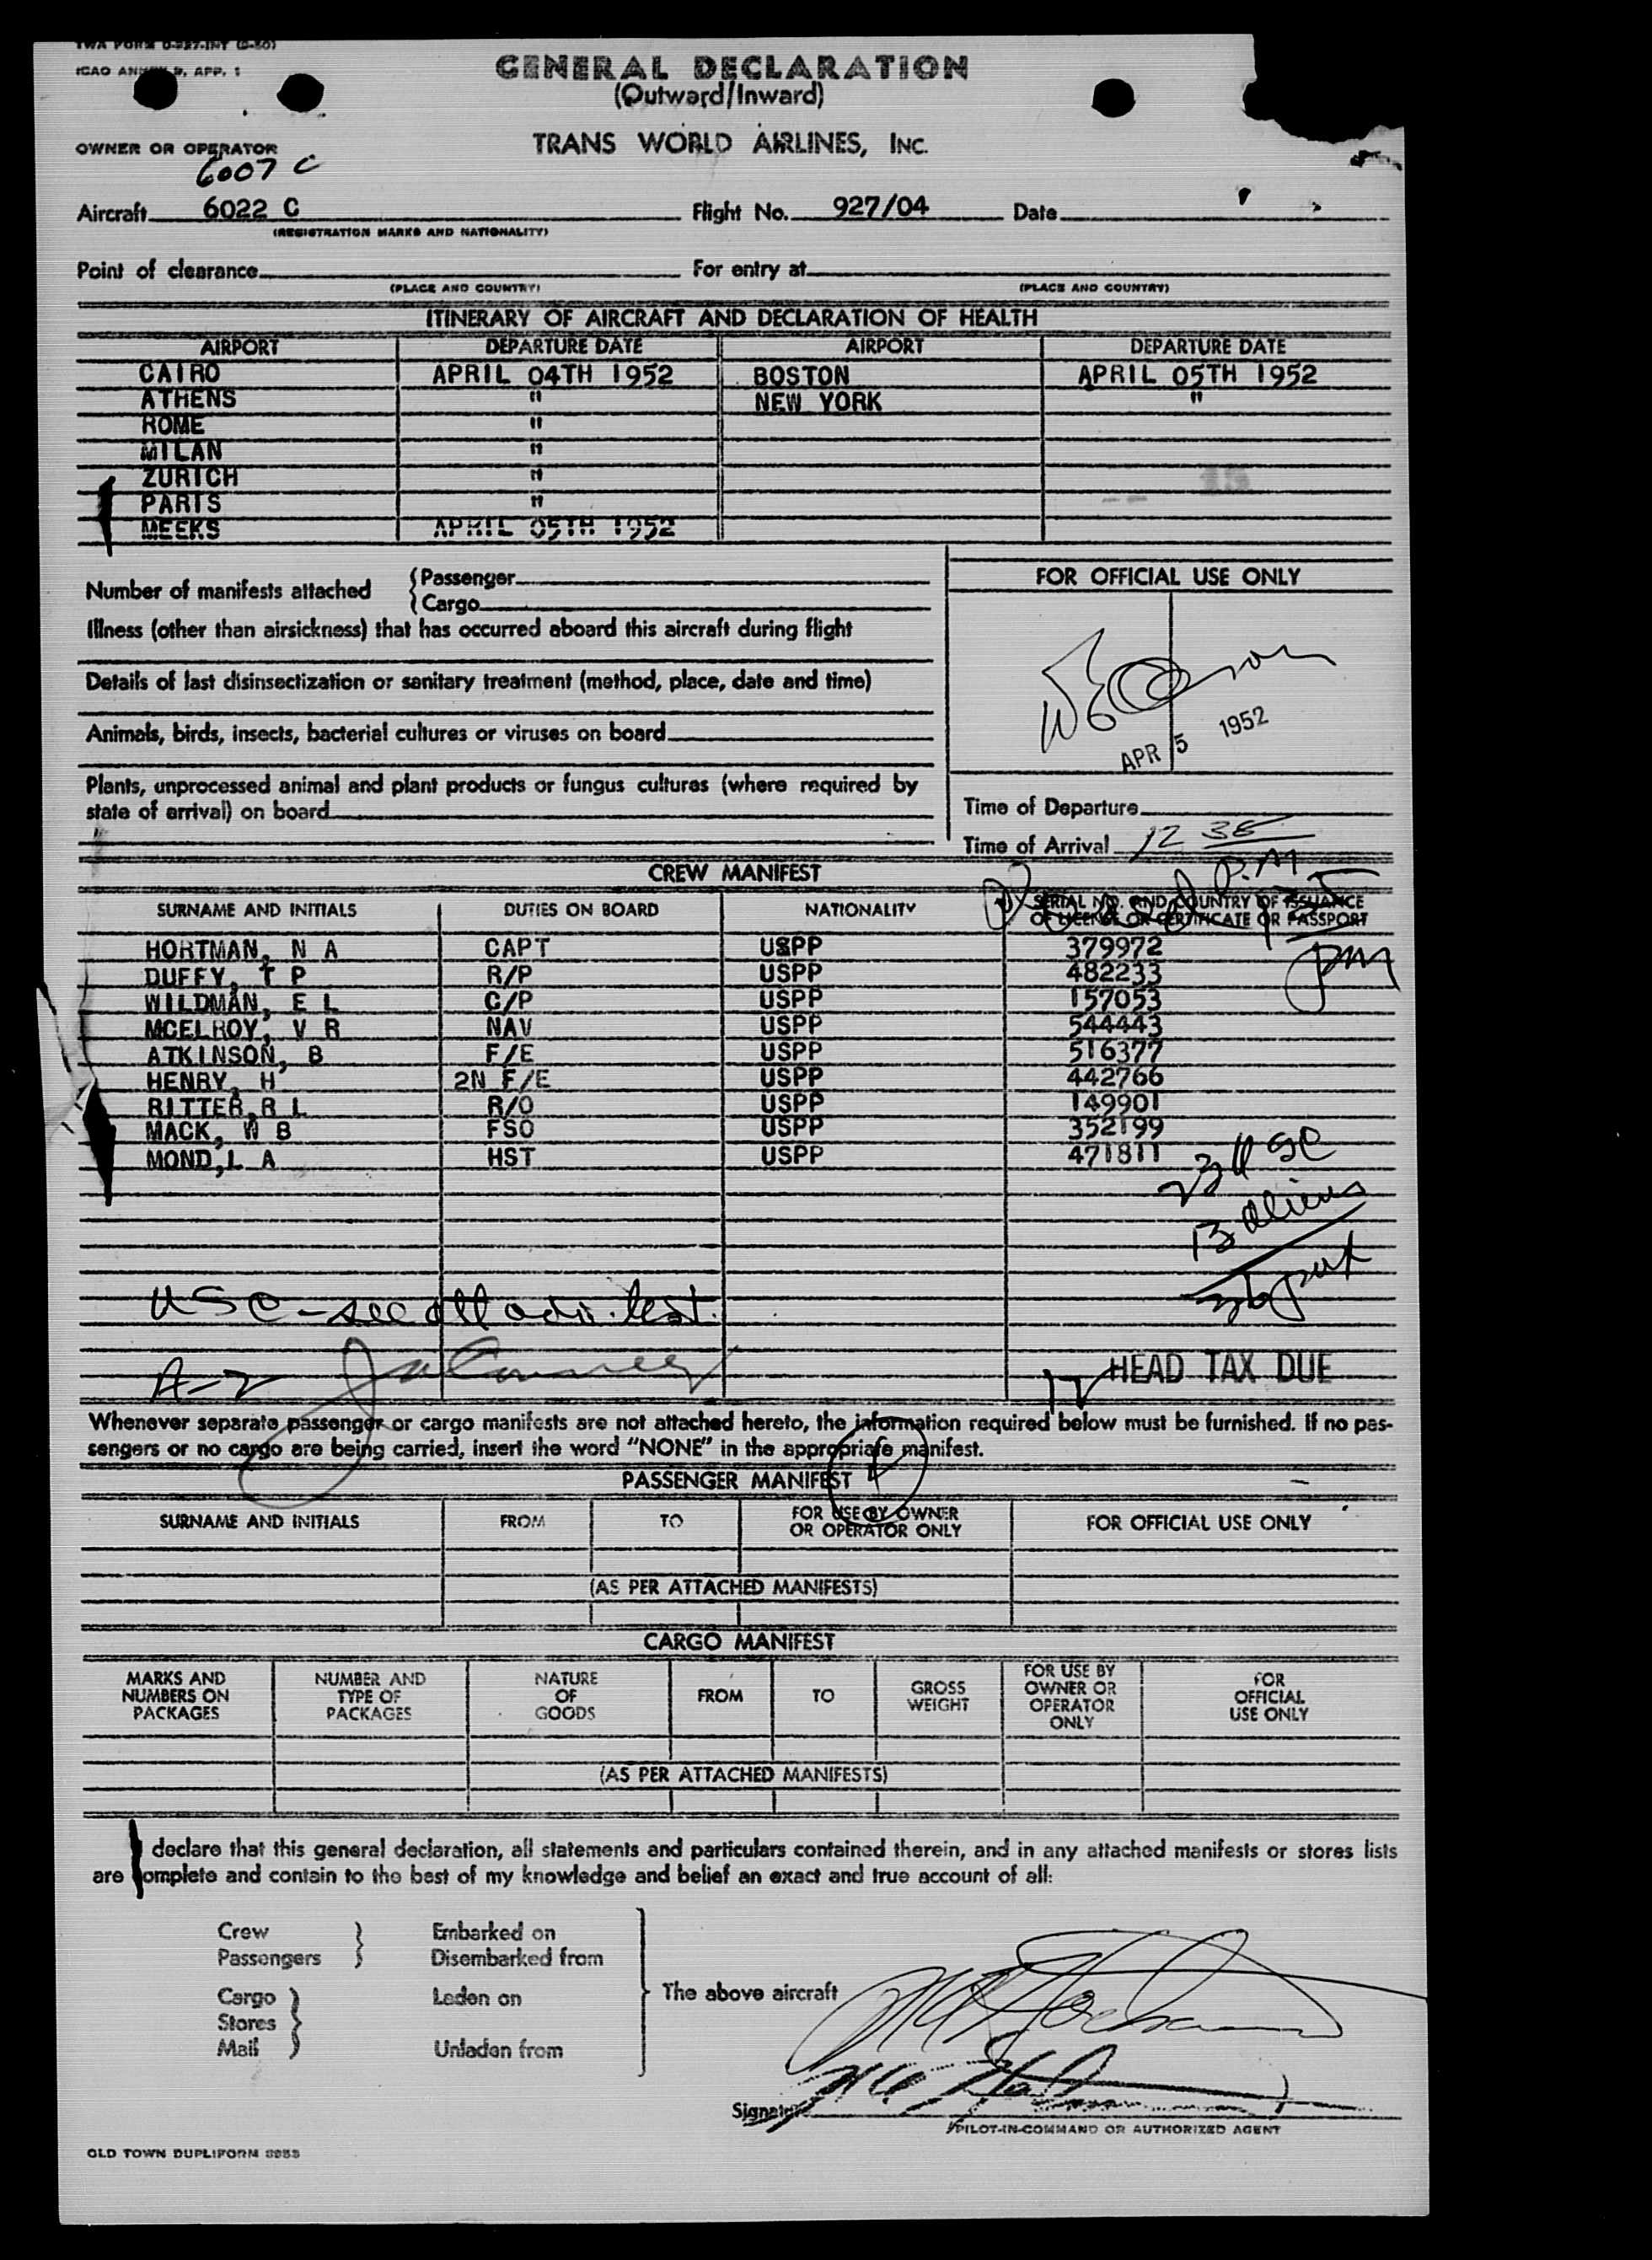 TWA FORM D-927-INT (2-50)
ICAO ANNEX 9, APP. 1
GENERAL DECLARATION
(Outward/Inward)
OWNER OR OPERATOR
TRANS WORLD AIRLINES, INC.
6007 C
Aircraft 6022 C Flight No. 927/04 Date
(REGISTRATION MARKS AND NATIONALITY)
Point of clearance For entry at
(PLACE AND COUNTRY) (PLACE AND COUNTRY)
ITINERARY OF AIRCRAFT AND DECLARATION OF HEALTH
AIRPORT DEPARTURE DATE AIRPORT DEPARTURE DATE
CAIRO APRIL 04TH 1952 BOSTON APRIL 05TH 1952
ATHENS " NEW YORK "
ROME "
MILAN "
ZURICH "
PARIS "
MEEKS APRIL 05TH 1952
Number of manifests attached { Passenger
{ Cargo
FOR OFFICIAL USE ONLY
Illness (other than airsickness) that has occurred aboard this aircraft during flight
Details of last disinsectization or sanitary treatment (method, place, date and time)
Animals, birds, insects, bacterial cultures or viruses on board
APR 5 1952
Plants, unprocessed animal and plant products or fungus cultures (where required by
state of arrival) on board
Time of Departure
Time of Arrival 12 35
P.M
CREW MANIFEST
SURNAME AND INITIALS DUTIES ON BOARD NATIONALITY SERIAL NO. AND COUNTRY OF ISSUANCE
OF LICENSE OR CERTIFICATE OR PASSPORT
HORTMAN, N A CAPT USPP 379972
pm
DUFFY, T P R/P USPP 482233
WILDMAN, E L C/P USPP 157053
MCELROY, V R NAV USPP 544443
ATKINSON, B F/E USPP 516377
HENRY, H 2N F/E USPP 442766
RITTER,R L R/O USPP 149901
MACK, W B FSO USPP 352199
MOND,L A HST USPP 471811
23 USC
13 aliens
36 pax
USC - see att adv. list.
A-2
12 HEAD TAX DUE
Whenever separate passenger or cargo manifests are not attached hereto, the information required below must be furnished. If no pas-
sengers or no cargo are being carried, insert the word "NONE" in the appropriate manifest.
PASSENGER MANIFEST
SURNAME AND INITIALS FROM TO FOR USE BY OWNER OR OPERATOR ONLY FOR OFFICIAL USE ONLY
(AS PER ATTACHED MANIFESTS)
CARGO MANIFEST
MARKS AND NUMBERS ON PACKAGES NUMBER AND TYPE OF PACKAGES NATURE OF GOODS FROM TO GROSS WEIGHT FOR USE BY OWNER OR OPERATOR ONLY FOR OFFICIAL USE ONLY
(AS PER ATTACHED MANIFESTS)
declare that this general declaration, all statements and particulars contained therein, and in any attached manifests or stores lists
are omplete and contain to the best of my knowledge and belief an exact and true account of all:
Crew Embarked on
Passengers Disembarked from
Cargo Laden on The above aircraft
Stores
Mail Unladen from
Signature
PILOT-IN-COMMAND OR AUTHORIZED AGENT
OLD TOWN DUPLIFORM